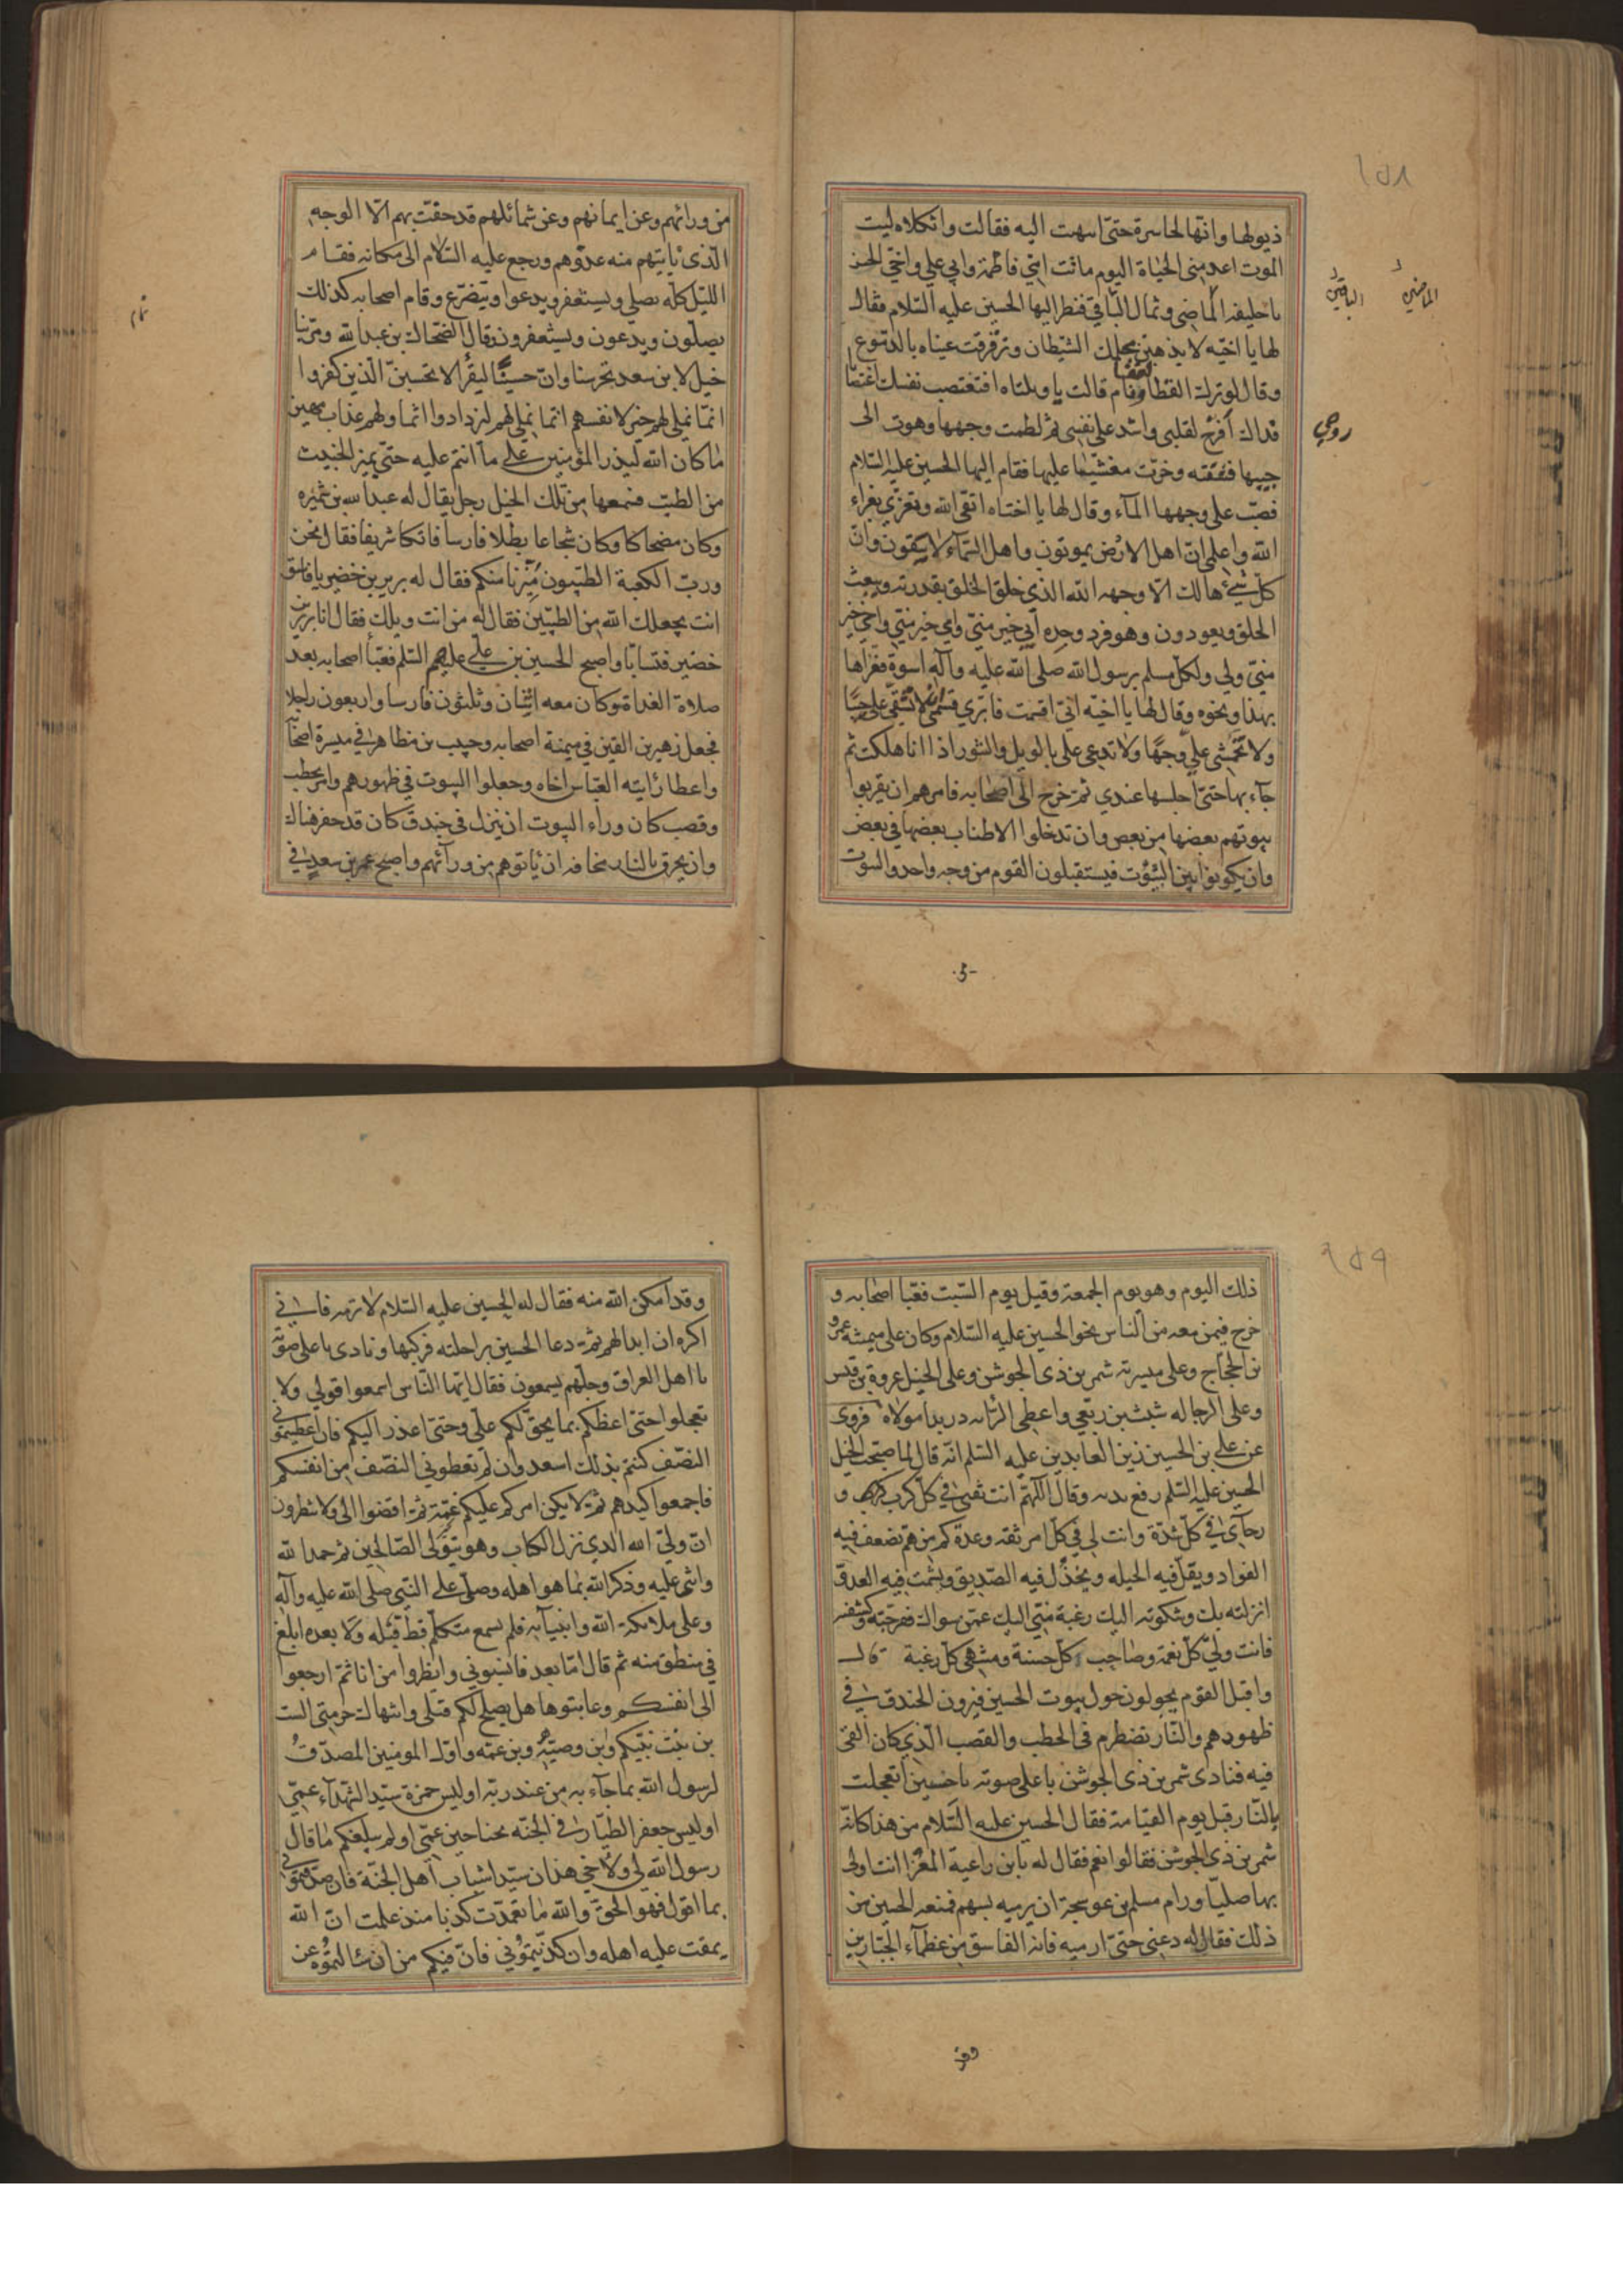 ١٥٨
ذيولها وانها لحاسرة حتى انتهت اليه فقالت واثكلاه ليت
الموت اعدمنى الحياة اليوم ماتت امّي فاطمة وابي علي واخي الحسن
يا خليفة الماضى وثمال الباقي فنظر اليها الحسين عليه السلام فقال
الماضين
الباقين
لها يا اخيّه لا يذهبن بحلمك الشيطان وترقرقت عيناه بالدموع
وقال لو ترك القطا لغفا ونام قالت يا ويلتاه افتغتصب نفسك اغتصابا
فذاك أقرح لقلبي واشد على نفسي ثم لطمت وجهها وهوت الى
روحي
جيبها فشقته وخرّت مغشيّا عليها فقام اليها الحسين عليه السلام
فصبّ على وجهها المآء وقال لها يا اختاه اتقي الله وتعزّي بعزاء
الله واعلمي انّ اهل الارض يموتون واهل السّمآء لا يبقون وانّ
كلّ شيئ هالك الّا وجهه الله الذي خلق الخلق بقدرته ويبعث
الخلق ويعودون وهو فرد وحده أبي خير منّي وامي خير منّي واخي خير
منّي ولي ولكلّ مسلم برسول الله صلى الله عليه وآله اسوة فعزاها
بهذا ونحوه وقال لها يا اخيّه انّي اقسمت فابري قسمي لا تشقي عليّ جيبا
ولا تخمشى عليّ وجها ولا تدعي علي بالويل والثبور اذا انا هلكت ثم
جآء بها حتى اجلسها عندي ثمّ خرج الى اصحابه فامرهم ان يقربوا
بيوتهم بعضها من بعض وان تدخلوا الاطناب بعضها في بعض
وان يكونوا بين البيوت فيستقبلون القوم من وجه واحد والبيوت
من ورائهم وعن ايمانهم وعن شمائلهم قد حفّت بهم الّا الوجه
الّذى يأتيهم منه عدوّهم ورجع عليه السّلام الى مكانه فقام
الليل كلّه يصلي ويستغفر ويدعوا ويتضرّع وقام اصحابه كذلك
يصلّون ويدعون ويستغفرون وقال الضّحاك بن عبد الله ومرّ بنا
خيل لابن سعد تحرسنا وانّ حسينًا ليقرأ لا تحسبنّ الّذين كفروا
انّما نملي لهم خير لانفسهم انّما نملي لهم ليزدادوا اثما ولهم عذاب مهين
ما كان الله ليذر المؤمنين على ما انتم عليه حتى يميز الخبيث
من الطيّب فسمعها من تلك الخيل رجل يقال له عبد الله بن شميره
وكان مضحاكا وكان شجاعا بطلا فارسا فاتكا شريفا فقال نحن
وربّ الكعبة الطيّبون ميّزنا منكم فقال له برير بن خضير يا فاسق
انت يجعلك الله من الطيّبين فقال له من انت ويلك فقال انا برير بن
خضير فتسابّا واصبح الحسين بن علي عليهم السّلم فعبّأ اصحابه بعد
صلاة الغداة وكان معه اثنان وثلثون فارسا واربعون راجلا
فجعل زهير بن القين في ميمنة اصحابه وحبيب بن مظاهر في ميسرة اصحابه
واعطا رايته العبّاس اخاه وجعلوا البيوت في ظهورهم وامر بحطب
وقصب كان وراء البيوت ان ينزل في خندق كان قد حفر هناك
وان يحرق بالنار مخافه ان ياتوهم من ورآئهم واصبح عمر بن سعد في
١٥٩
ذلك اليوم وهو يوم الجمعة وقيل يوم السّبت فعبّا اصحابه و
خرج فيمن معه من النّاس نحو الحسين عليه السّلام وكان على ميمنته عمرو
بن الحجّاج وعلى ميسرته شمر بن ذي الجوشن وعلى الخيل عروة بن قيس
وعلى الرجاله شبث بن ربعي واعطي الرّايه دريدا مولاه فروى
عن علي بن الحسين زين العابدين عليه السّلم انّه قال لما صبّحت الخيل
الحسين عليه السّلم رفع يديه وقال اللّهمّ انت ثقتي في كلّ كرب و
رجآي في كلّ شدّة وانت لي في كلّ امر ثقه وعدّة كم من همّ تضعف فيه
الفواد ويقلّ فيه الحيله ويخذل فيه الصّديق ويشمت فيه العدوّ
انزلته بك وشكوته اليك رغبة منّي اليك عمّن سواك ففرجته وكشفته
فانت وليّ كلّ نعمة وصاحب كلّ حسنة ومنتهى كلّ رغبة قال
واقبل القوم يجولون حول بيوت الحسين فيرون الخندق في
ظهورهم والنّار تضطرم في الحطب والقصب الّذي كان القي
فيه فنادى شمر بن ذي الجوشن باعلى صوته يا حسين أتعجلت
بالنّار قبل يوم القيامة فقال الحسين عليه السّلام من هذا كانّه
شمر بن ذي الجوشن فقالوا نعم فقال له يابن راعية المعزا انت اولى
بها صليّا ورام مسلم بن عوسجة ان يرميه بسهم فمنعه الحسين من
ذلك فقال له دعني حتى ارميه فانه الفاسق من عظمآء الجبّارين
وقد
وقد امكن الله منه فقال له الحسين عليه السّلام لا ترمه فاني
اكره ان ابدا لهم ثمّ دعا الحسين براحلته فركبها ونادى باعلى صوته
يا اهل العراق وجلّهم يسمعون فقال ايّها النّاس اسمعوا قولي ولا
تعجلوا حتى اعظكم بما يحقّ لكم علي وحتى اعذر اليكم فان اعطيتموني
النصف كنتم بذلك اسعد وان لم تعطوني النصف من انفسكم
فاجمعوا كيدهم ثمّ لا يكن امركم عليكم غمّة ثمّ اقضوا الىّ ولا تنظرون
انّ وليّ الله الذي نزل الكتاب وهو يتولّى الصّالحين ثم حمد الله
واثنى عليه وذكر الله بما هو اهله وصلّى على النّبي صلى الله عليه وآله
وعلى ملائكة الله وانبيآئه فلم يسمع متكلّم قطّ قبله ولا بعده ابلغ
في منطق منه ثم قال امّا بعد فانسبوني وانظروا من انا ثمّ ارجعوا
الى انفسكم وعاتبوها هل يصلح لكم قتلى وانتهاك حرمتي الست
بن بنت نبيّكم وبن وصيّه وبن عمّه واوّل المومنين المصدّق
لرسول الله بما جآء به من عند ربّه اوليس حمزة سيّد الشّهدآء عمّي
اوليس جعفر الطيّار في الجنّه بجناحين عمّي اولم يبلغكم ما قال
رسول الله لي ولاخي هذان سيّدا شباب اهل الجنّة فان صدّقتموني
بما اقول فهو الحقّ والله ما تعمّدت كذبا منذ علمت انّ الله
يمقت عليه اهله وان كذّبتموني فانّ فيكم من ان سالتموه عن